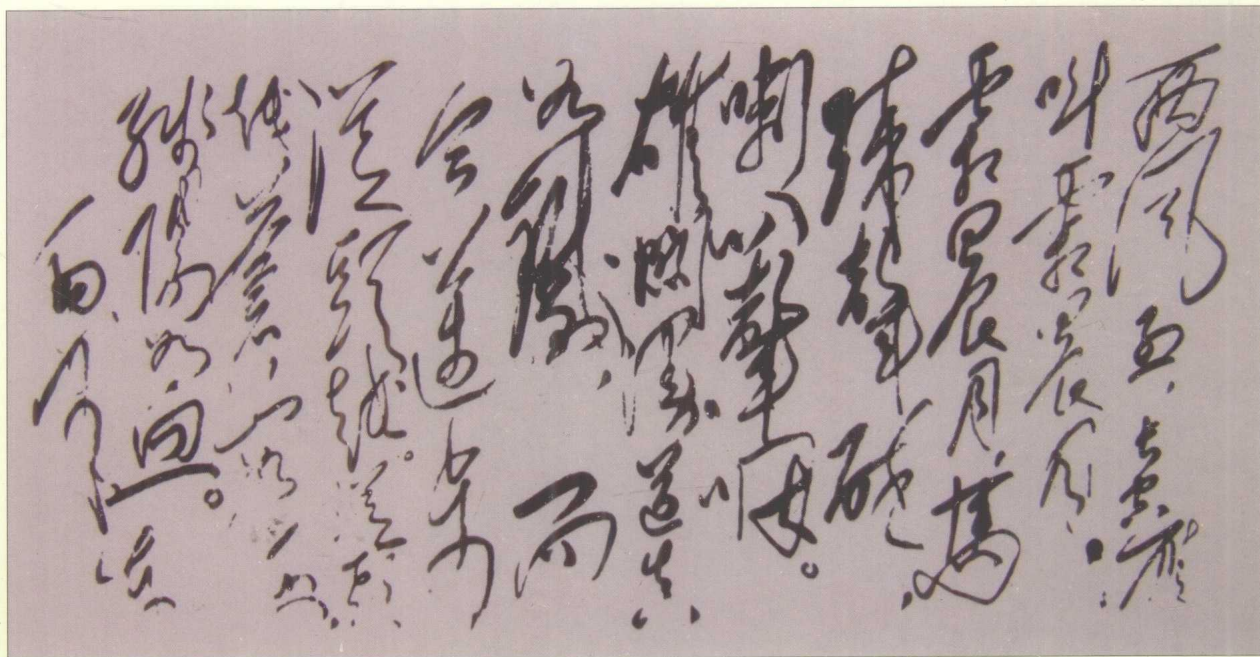 西風烈,長空雁
叫霜晨月。
霜晨月,馬
蹄聲碎,
喇叭聲咽。
雄關漫道真
如鐵,而
今邁步
從頭越。從頭
越,蒼山如海,
殘陽如血。